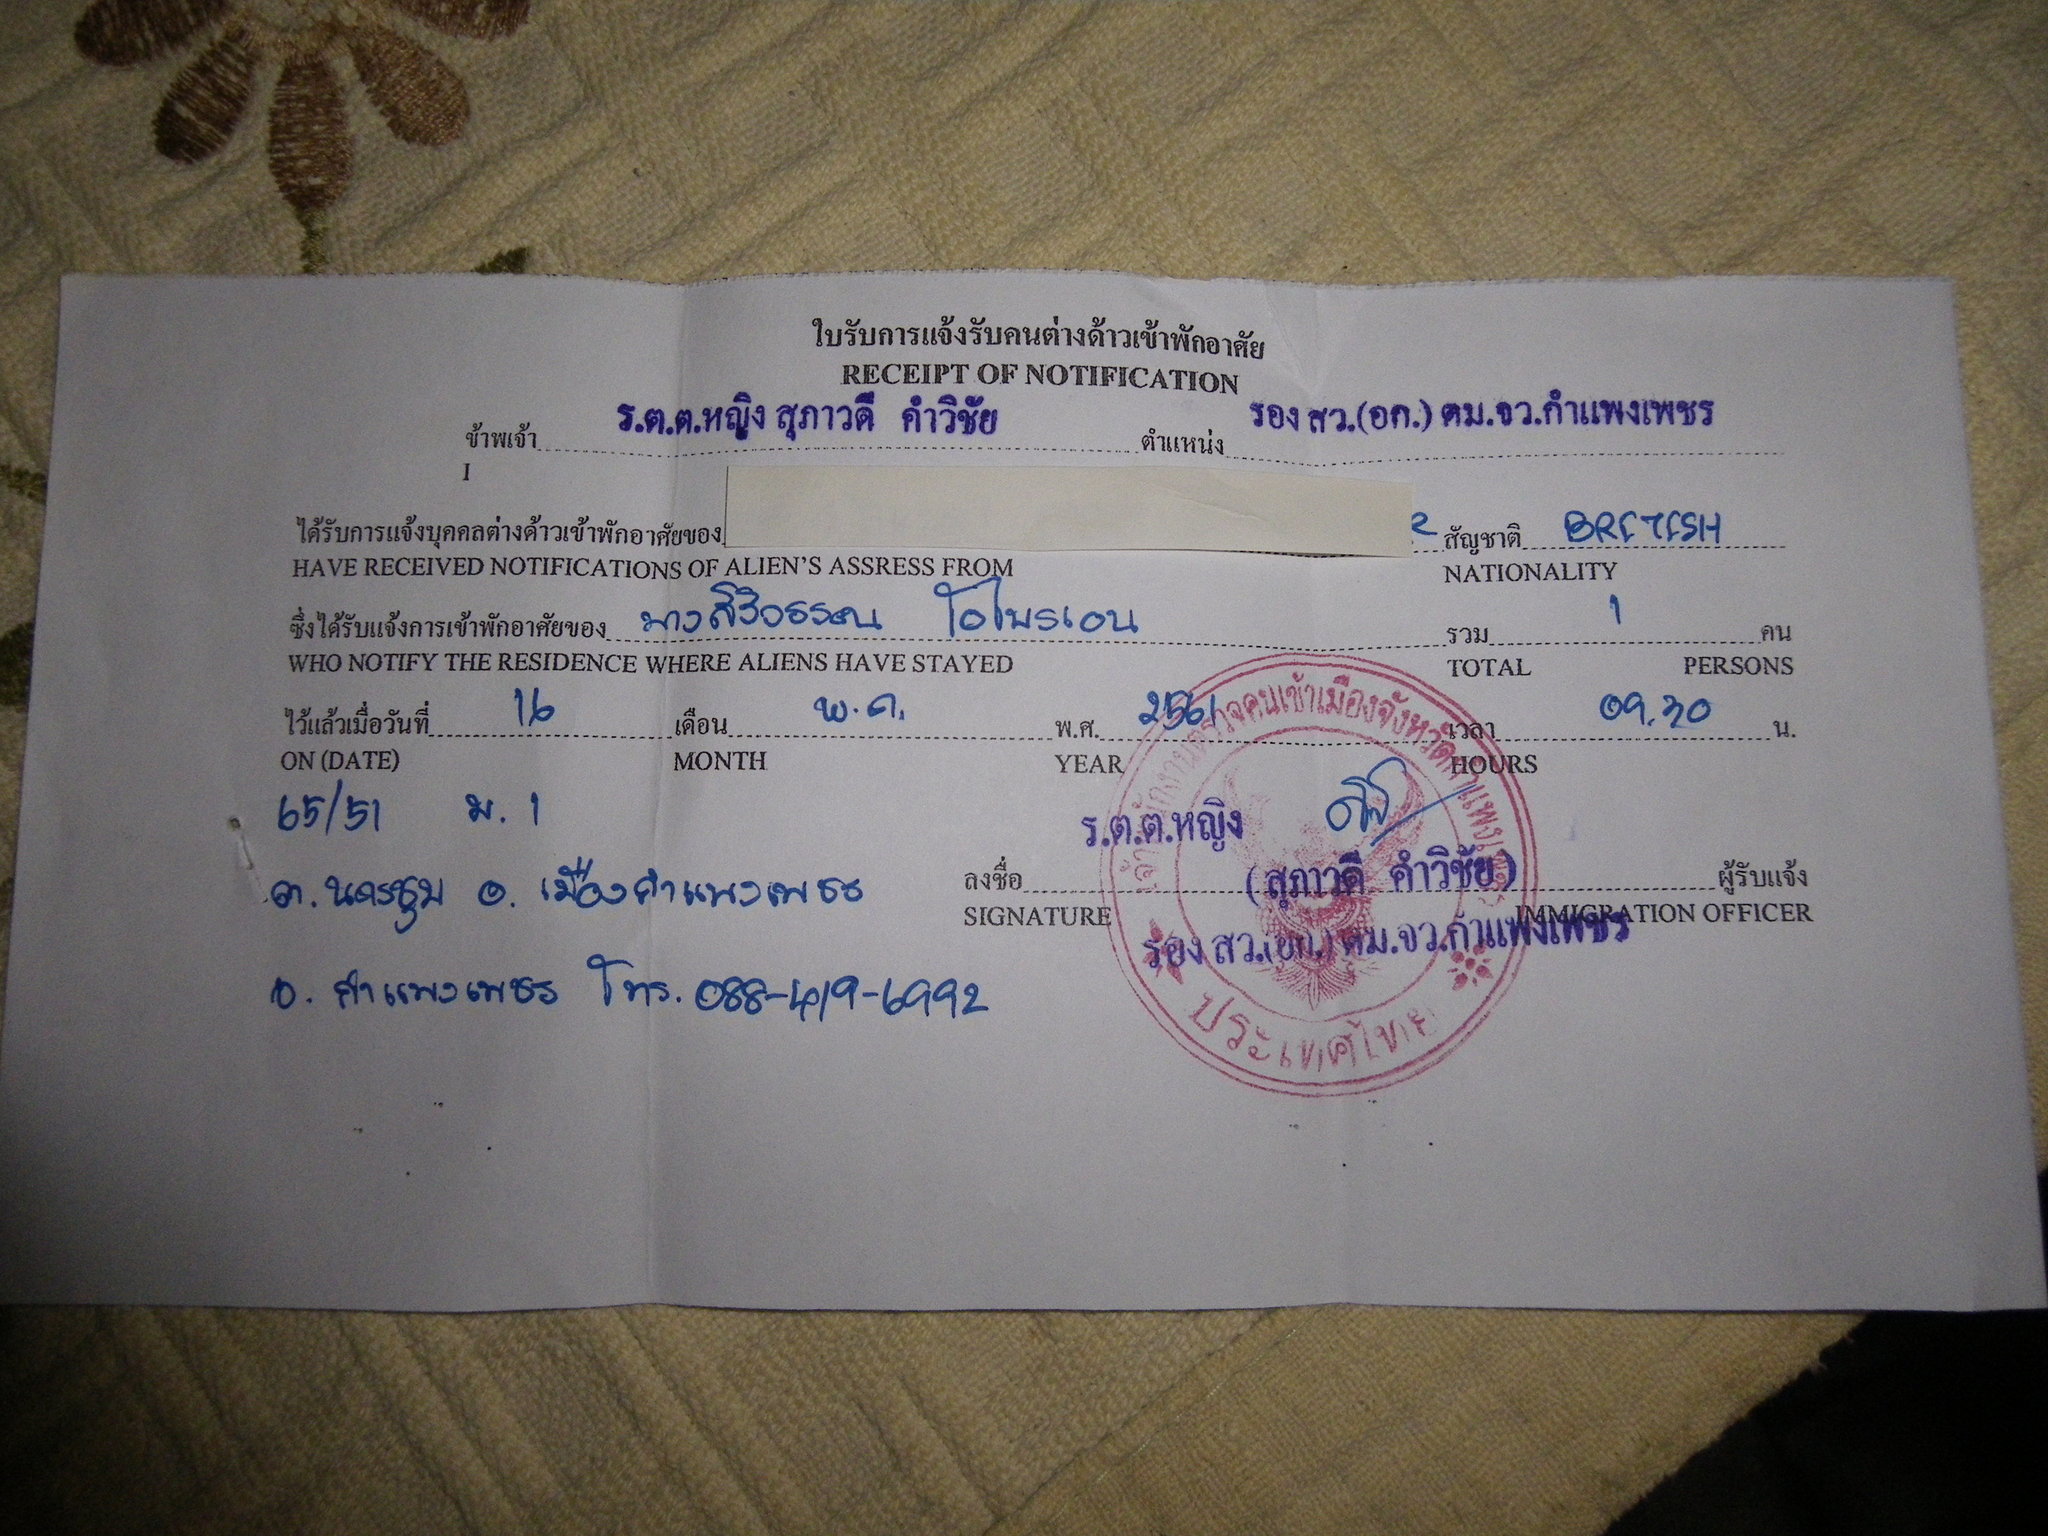 ใบรับการแจ้งรับคนต่างด้าวเข้าพักอาศัย
RECEIPT OF NOTIFICATION
ข้าพเจ้า ร.ต.ต.หญิง สุภาวดี คำวิชัย ตำแหน่ง รอง สว.(อก.) ตม.จว.กำแพงเพชร
I
ได้รับการแจ้งบุคคลต่างด้าวเข้าพักอาศัยของ สัญชาติ BRITISH
HAVE RECEIVED NOTIFICATIONS OF ALIEN'S ASSRESS FROM NATIONALITY
ซึ่งได้รับแจ้งการเข้าพักอาศัยของ นาง โอไบรเอน รวม 1 คน
WHO NOTIFY THE RESIDENCE WHERE ALIENS HAVE STAYED TOTAL PERSONS
ไว้แล้วเมื่อวันที่ 16 เดือน พ.ค. พ.ศ. 2561 เวลา 09.30 น.
ON (DATE) MONTH YEAR HOURS
65/51 ม. 1
ร.ต.ต.หญิง
ต. นครชุม อ. เมืองกำแพงเพชร
ลงชื่อ (สุภาวดี คำวิชัย) ผู้รับแจ้ง
SIGNATURE IMMIGRATION OFFICER
รอง สว.(อก.) ตม.จว.กำแพงเพชร
จ. กำแพงเพชร โทร. 088-419-6992
ประเทศไทย